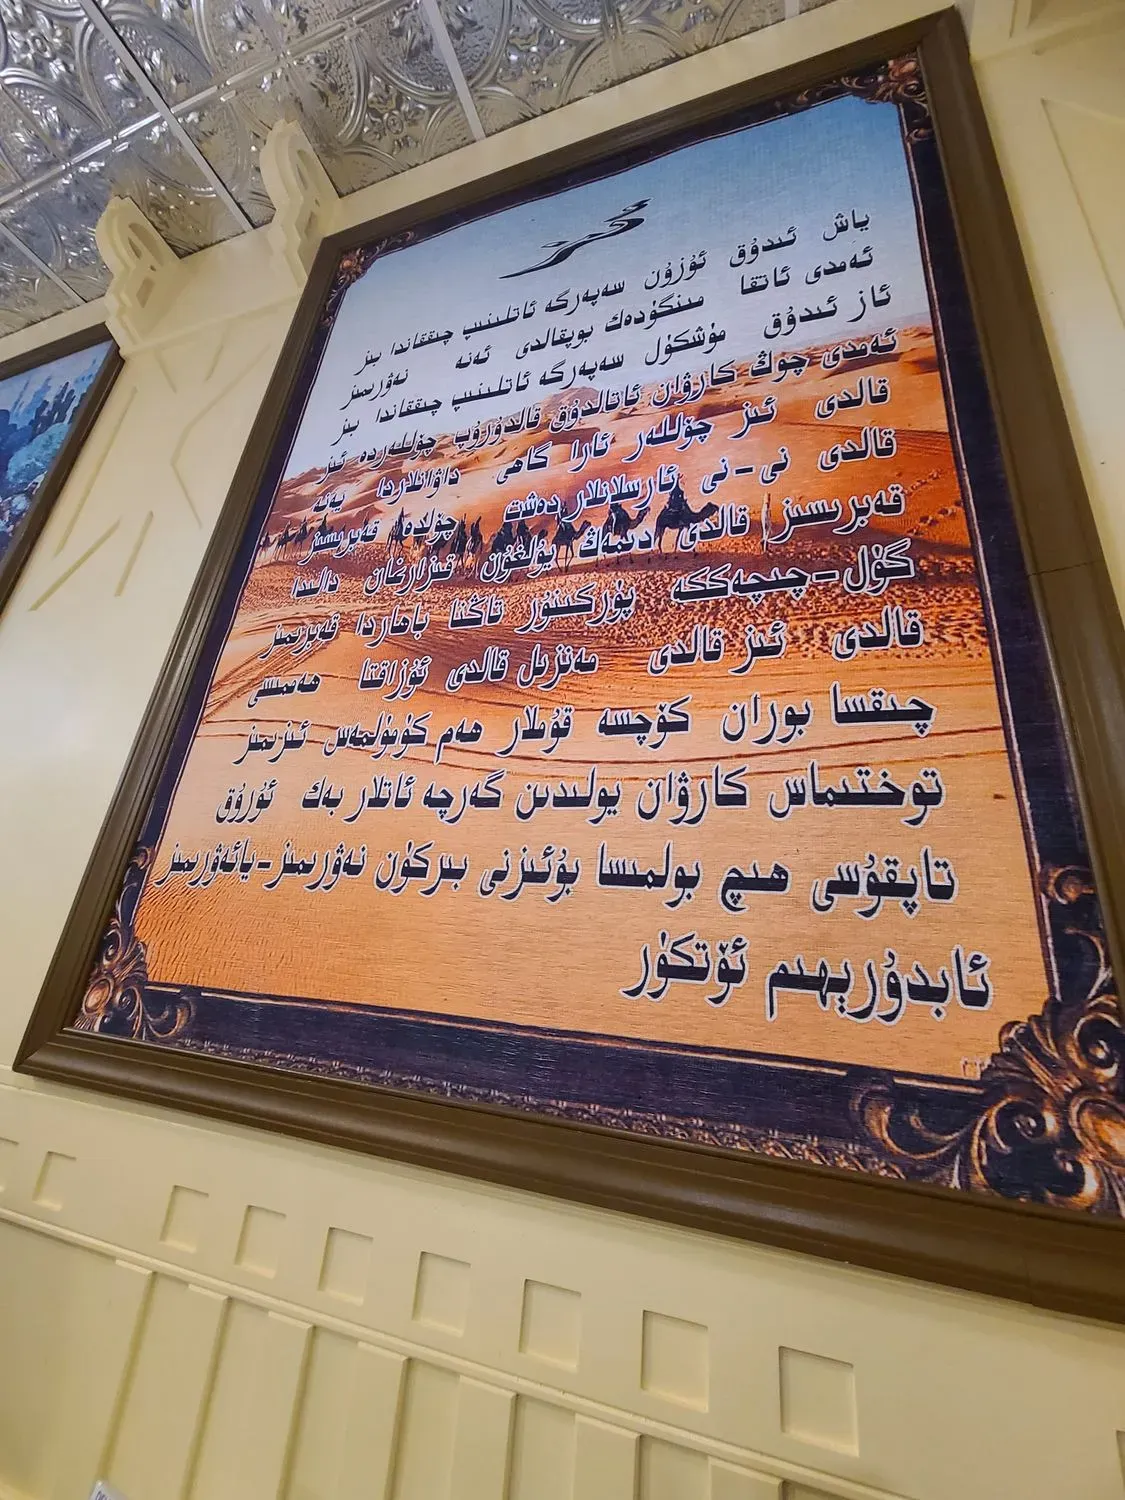 ئىز
ياش ئىدۇق ئۇزۇن سەپەرگە ئاتلىنىپ چىققاندا بىز
ئەمدى ئاتقا مىنگۈدەك بوپقالدى ئەنە نەۋرىمىز
ئاز ئىدۇق مۈشكۈل سەپەرگە ئاتلىنىپ چىققاندا بىز
ئەمدى چوڭ كارۋان ئاتالدۇق قالدۇرۇپ چۆللەردە ئىز
قالدى ئىز چۆللەر ئارا گاھى داۋانلاردا يەنە
قالدى نى-نى ئارسلانلار دەشت چۆلدە قەبرىسىز
قەبرىسىز قالدى دىمەڭ يۇلغۇن قىزارغان دالىدا
گۈل-چىچەككە پۈركىنۈر تاڭنا باھاردا قەبرىمىز
قالدى ئىز قالدى مەنزىل قالدى ئۇزاقتا ھەممىسى
چىقسا بوران كۆچسە قۇملار ھەم كۆمۈلمەس ئىزىمىز
توختىماس كارۋان يولىدىن گەرچە ئاتلار بەك ئۇرۇق
تاپقۇسى ھىچ بولمىسا بۇئىزنى بىركۈن نەۋرىمىز-يائەۋرىمىز
ئابدۇرېھىم ئۆتكۈر